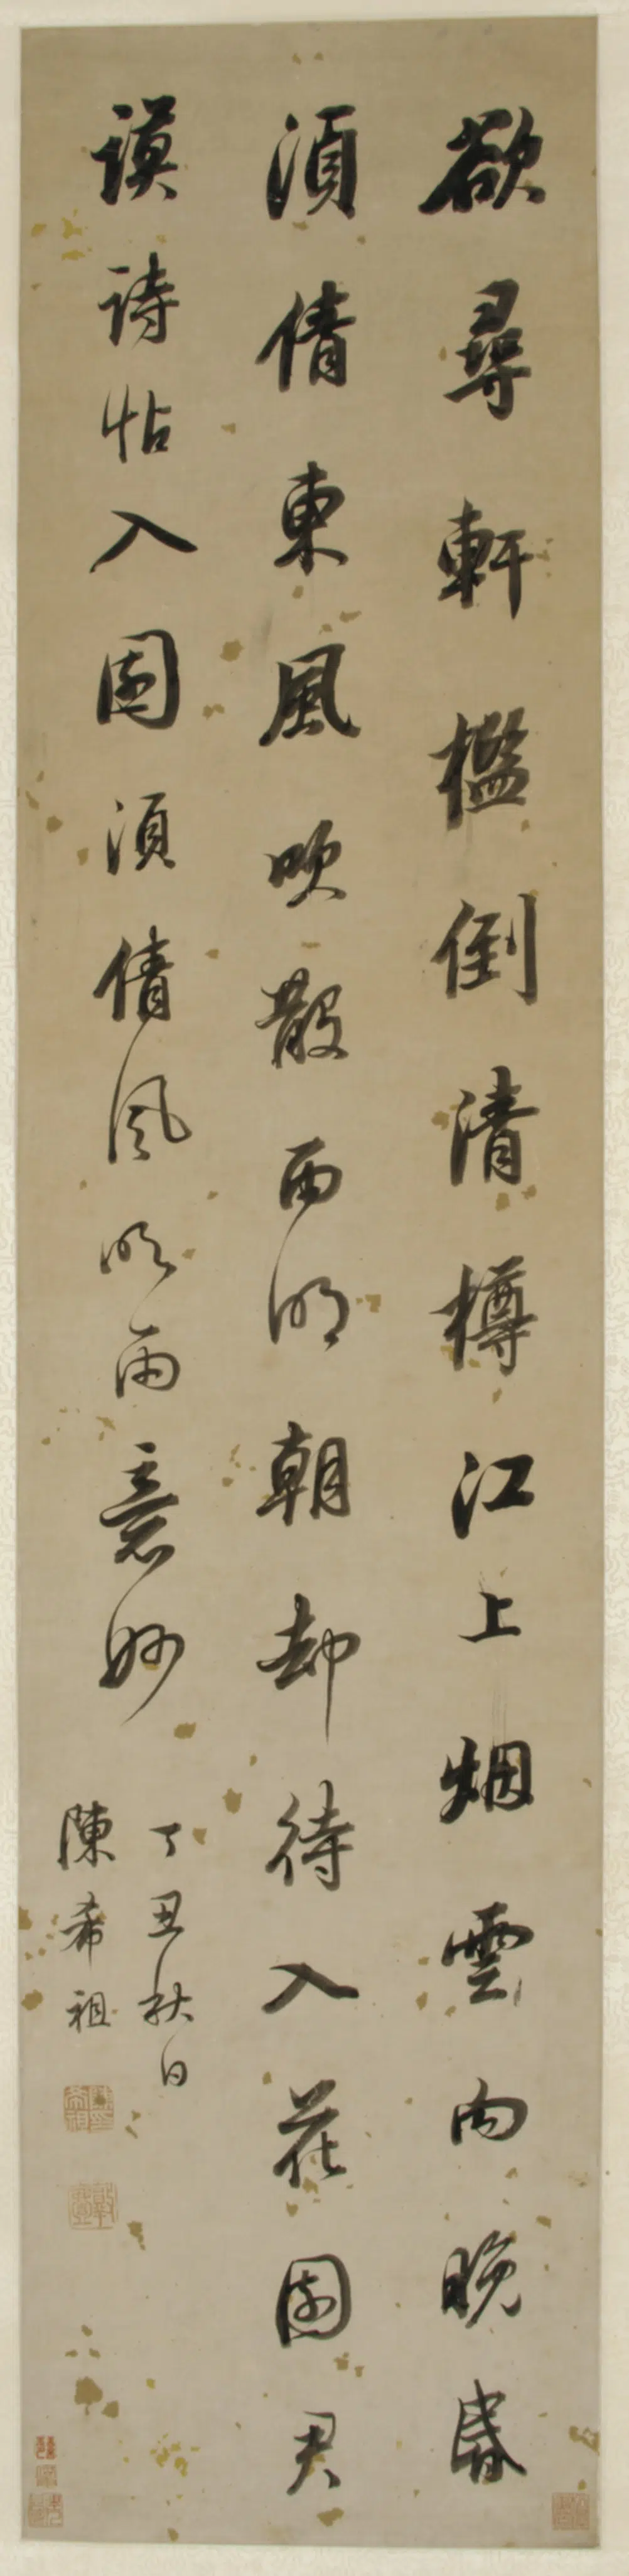 欲尋軒檻倒清樽江上烟雲向晚昏
須倩東風吹散雨明朝却待入花園君
謨詩帖入園須倩風吹雨意妙
丁丑秋日
陳希祖